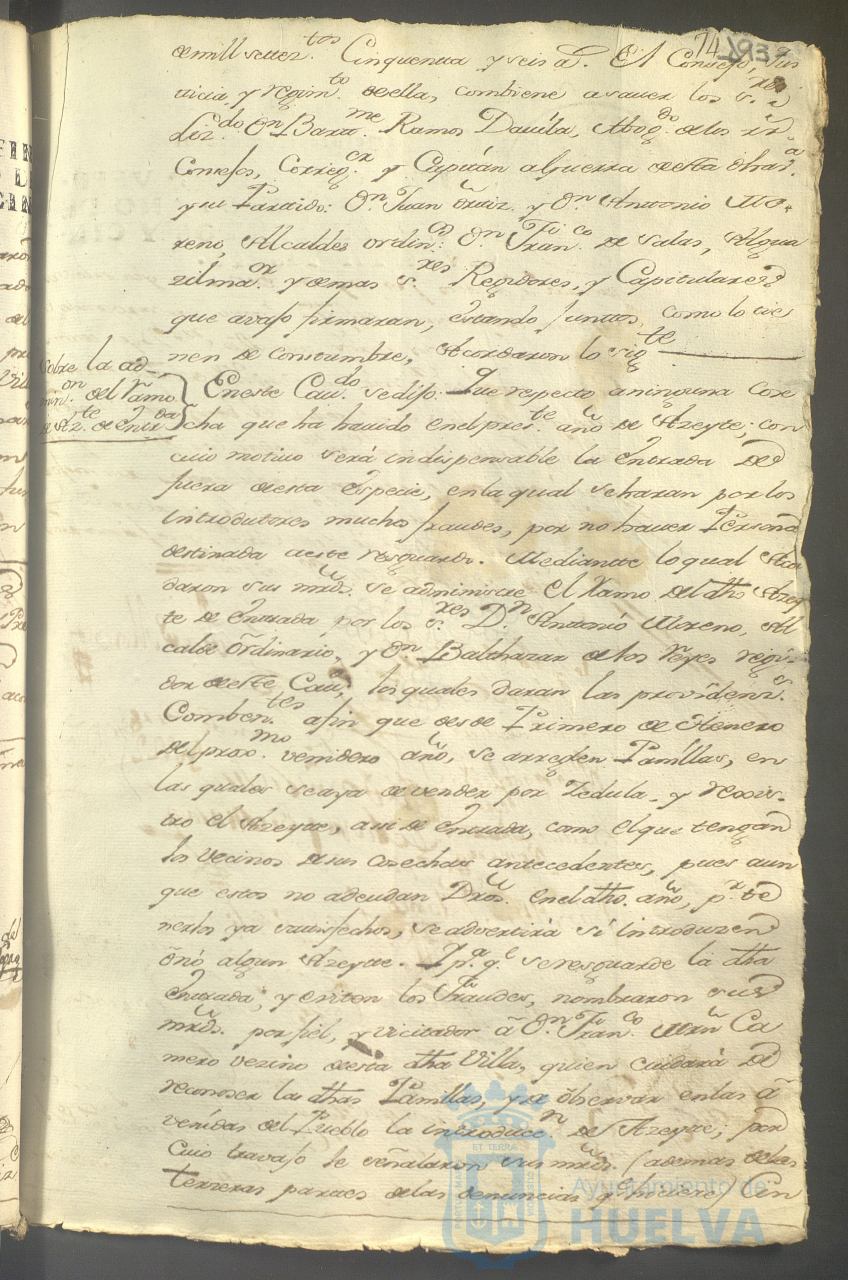 74
de mill settez.tos Cinquenta y seis a.s El Consejo, Jus
ticia y regim.to de ella, combiene a saver los s.res
Liz.do D.n Barto.me Ramos Davila, Abog.do de los R.s
Consejos, Correg.or y Capitan a guerra de esta dha v.a
y su Partido: D.n Juan Ortiz. y D.n Antonio Mo-
reno, Alcaldes ordin.os D.n Fran.co de Salas, Algua
zil ma.or y demas s.res Regidores, y Capitulares
que avajo firmaran, estando Juntos, como lo tie
nen de constumbre, Acordaron lo sig.te
Sobre la ad-
min.on del Ramo
de Az.te de entrada
En este Cav.do se dijo: Que respecto a ninguna cose
cha que ha havido en el pres.te año de Azeyte; con
cuio motivo será indispensable la entrada de
fuera de esta especie, en la qual se haran por los
introdutores muchos fraudes, por no haver Persona
destinada a este resguardo. Mediante lo qual Acor
daron sus mrds. se administre el Ramo del dho Azey
te de entrada por los s.res D.n Antonio Moreno, Al
calde Ordinario, y D.n Balthazar de los Reyes regi-
dor de este Cav.o, los quales daran las providenz.s
Comben.tes a fin que desde Primero de Henero
del prox.mo venidero año, se arreglen Panillas, en
las quales se aya de vender por Zedula, y rexis-
tro el Azeyte, asi de entrada, como el que tengan
los vecinos de sus cosechas antecedentes, pues aun
que estos no adeudan Dros. en el dho. año, p.r te
nerlos ya satisfechos, se advertirá si introduzen
ó no algun Azeyte. I p.a q.e se resguarde la dha
entrada, y eviten los Fraudes, nombraron sus
mrds. por fiel, y vicitador á D.n Fran.co Mrn Ca
mero vezino de esta dha Villa, quien cuidará de
reconoser las dhas Panillas, y de observar en las a
venidas del Pueblo la introducc.n del Azeyte; por
cuio travajo le señalaron sus mrds. (ademas de las
terseras partes de las denuncias q hiciere) Cin
ET TERRA
Ayuntamiento de
HUELVA